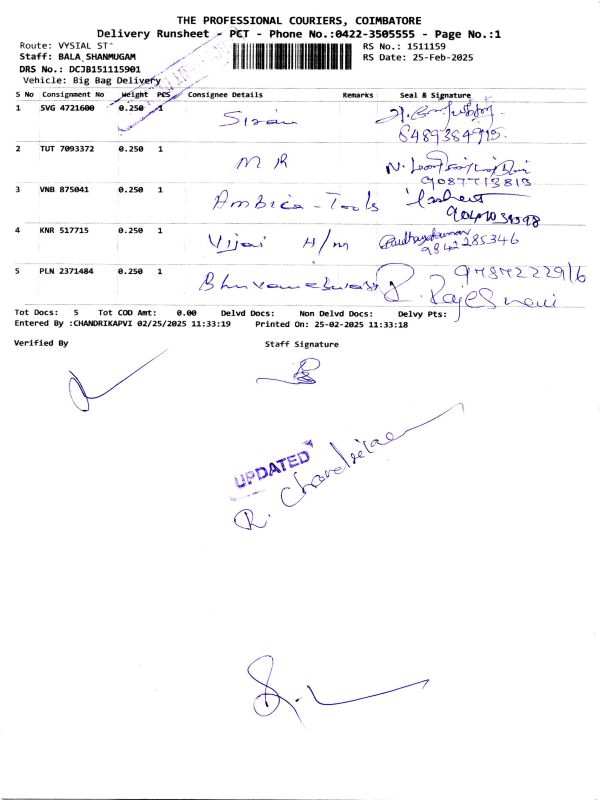 THE PROFESSIONAL COURIERS, COIMBATORE
Delivery Runsheet - PCT - Phone No.:0422-3505555 - Page No.:1
Route: VYSIAL ST" RS No.: 1511159
Staff: BALA SHANMUGAM RS Date: 25-Feb-2025
DRS No.: DCJB151115901
Vehicle: Big Bag Delivery
S No Consignment No Weight PCS Consignee Details Remarks Seal & Signature
1 SVG 4721600 0.250 1
8489384915
2 TUT 7093372 0.250 1 M R
9087713813
3 VNB 875041 0.250 1 Ambica - Tools
4 KNR 517715 0.250 1 Vijai H/m
9842285346
5 PLN 2371484 0.250 1
Tot Docs: 5 Tot COD Amt: 0.00 Delvd Docs: Non Delvd Docs: Delvy Pts:
Entered By :CHANDRIKAPVI 02/25/2025 11:33:19 Printed On: 25-02-2025 11:33:18
Verified By Staff Signature
UPDATED